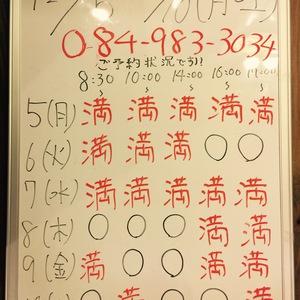 12/5 ~ 10(月~土)
0-84-983-3034
ご予約状況です!!
8:30~ 10:00~ 14:00~ 16:00~ 19:00~
5(月) 満 満 満 満 満
6(火) 満 満 満 ○ ○
7(水) 満 満 満 満 満
8(木) ○ ○ ○ 満 満
9(金) 満 ○ ○ 満 満